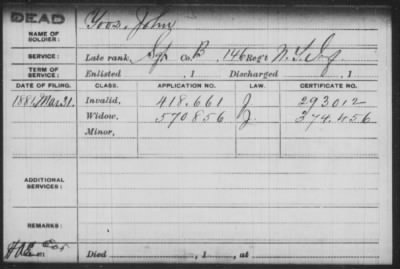 DEAD
NAME OF SOLDIER:
Yoos, John
SERVICE:
Late rank, Sgt Co. B, 146 Reg't N.Y. Inf
TERM OF SERVICE:
Enlisted , 1 Discharged , 1
DATE OF FILING. CLASS. APPLICATION NO. LAW. CERTIFICATE NO.
1881 Mar 31. Invalid, 418.661 J. 293012
Widow, 570856 J. 374.456
Minor,
ADDITIONAL SERVICES:
REMARKS:
Died , 1 , at